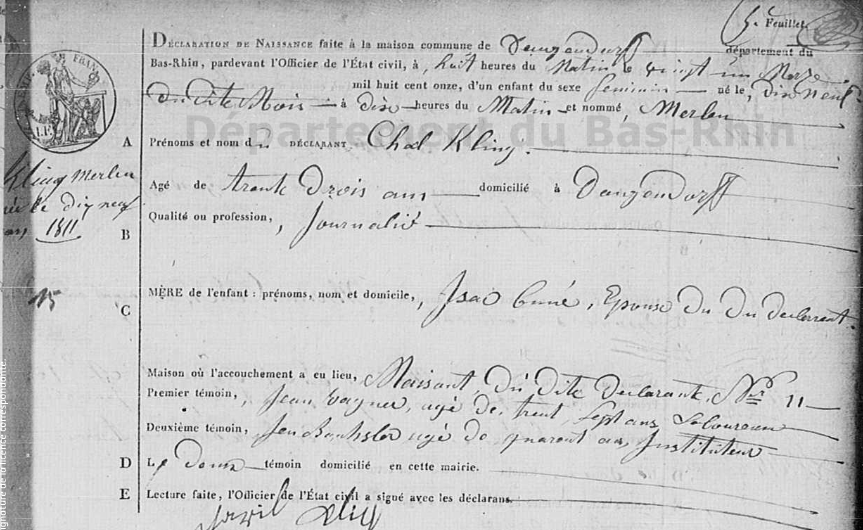 5e Feuillet.
DÉCLARATION DE NAISSANCE faite à la maison commune de Dangendorff département du
Bas-Rhin, pardevant l'Officier de l'État civil, à huit heures du Matin le vingt un Mars
mil huit cent onze, d'un enfant du sexe feminin né le, dix neuf
du dite Mois à dix heures du Matin et nommé, Merlen
Département du Bas-Rhin
A Prénoms et nom du DÉCLARANT Chal Kling.
Kling Merlen
née le dix neuf
1811
Agé de trente Drois ans domicilié à Dangendorff
B Qualité ou profession, Journalié
15
C MÈRE de l'enfant : prénoms, nom et domicile, Isac, Epouse du Du declarent.
Maison où l'accouchement a eu lieu, Maisant du dite declarante, No 11
Premier témoin, Jean Wagner, agé de trent sept ans Laboureur
Deuxième témoin, agé de quarent ans, Justituteur
D Le deux témoin domicilié en cette mairie.
E Lecture faite, l'Officier de l'État civil a signé avec les déclarans.
signature de la licence correspondante.